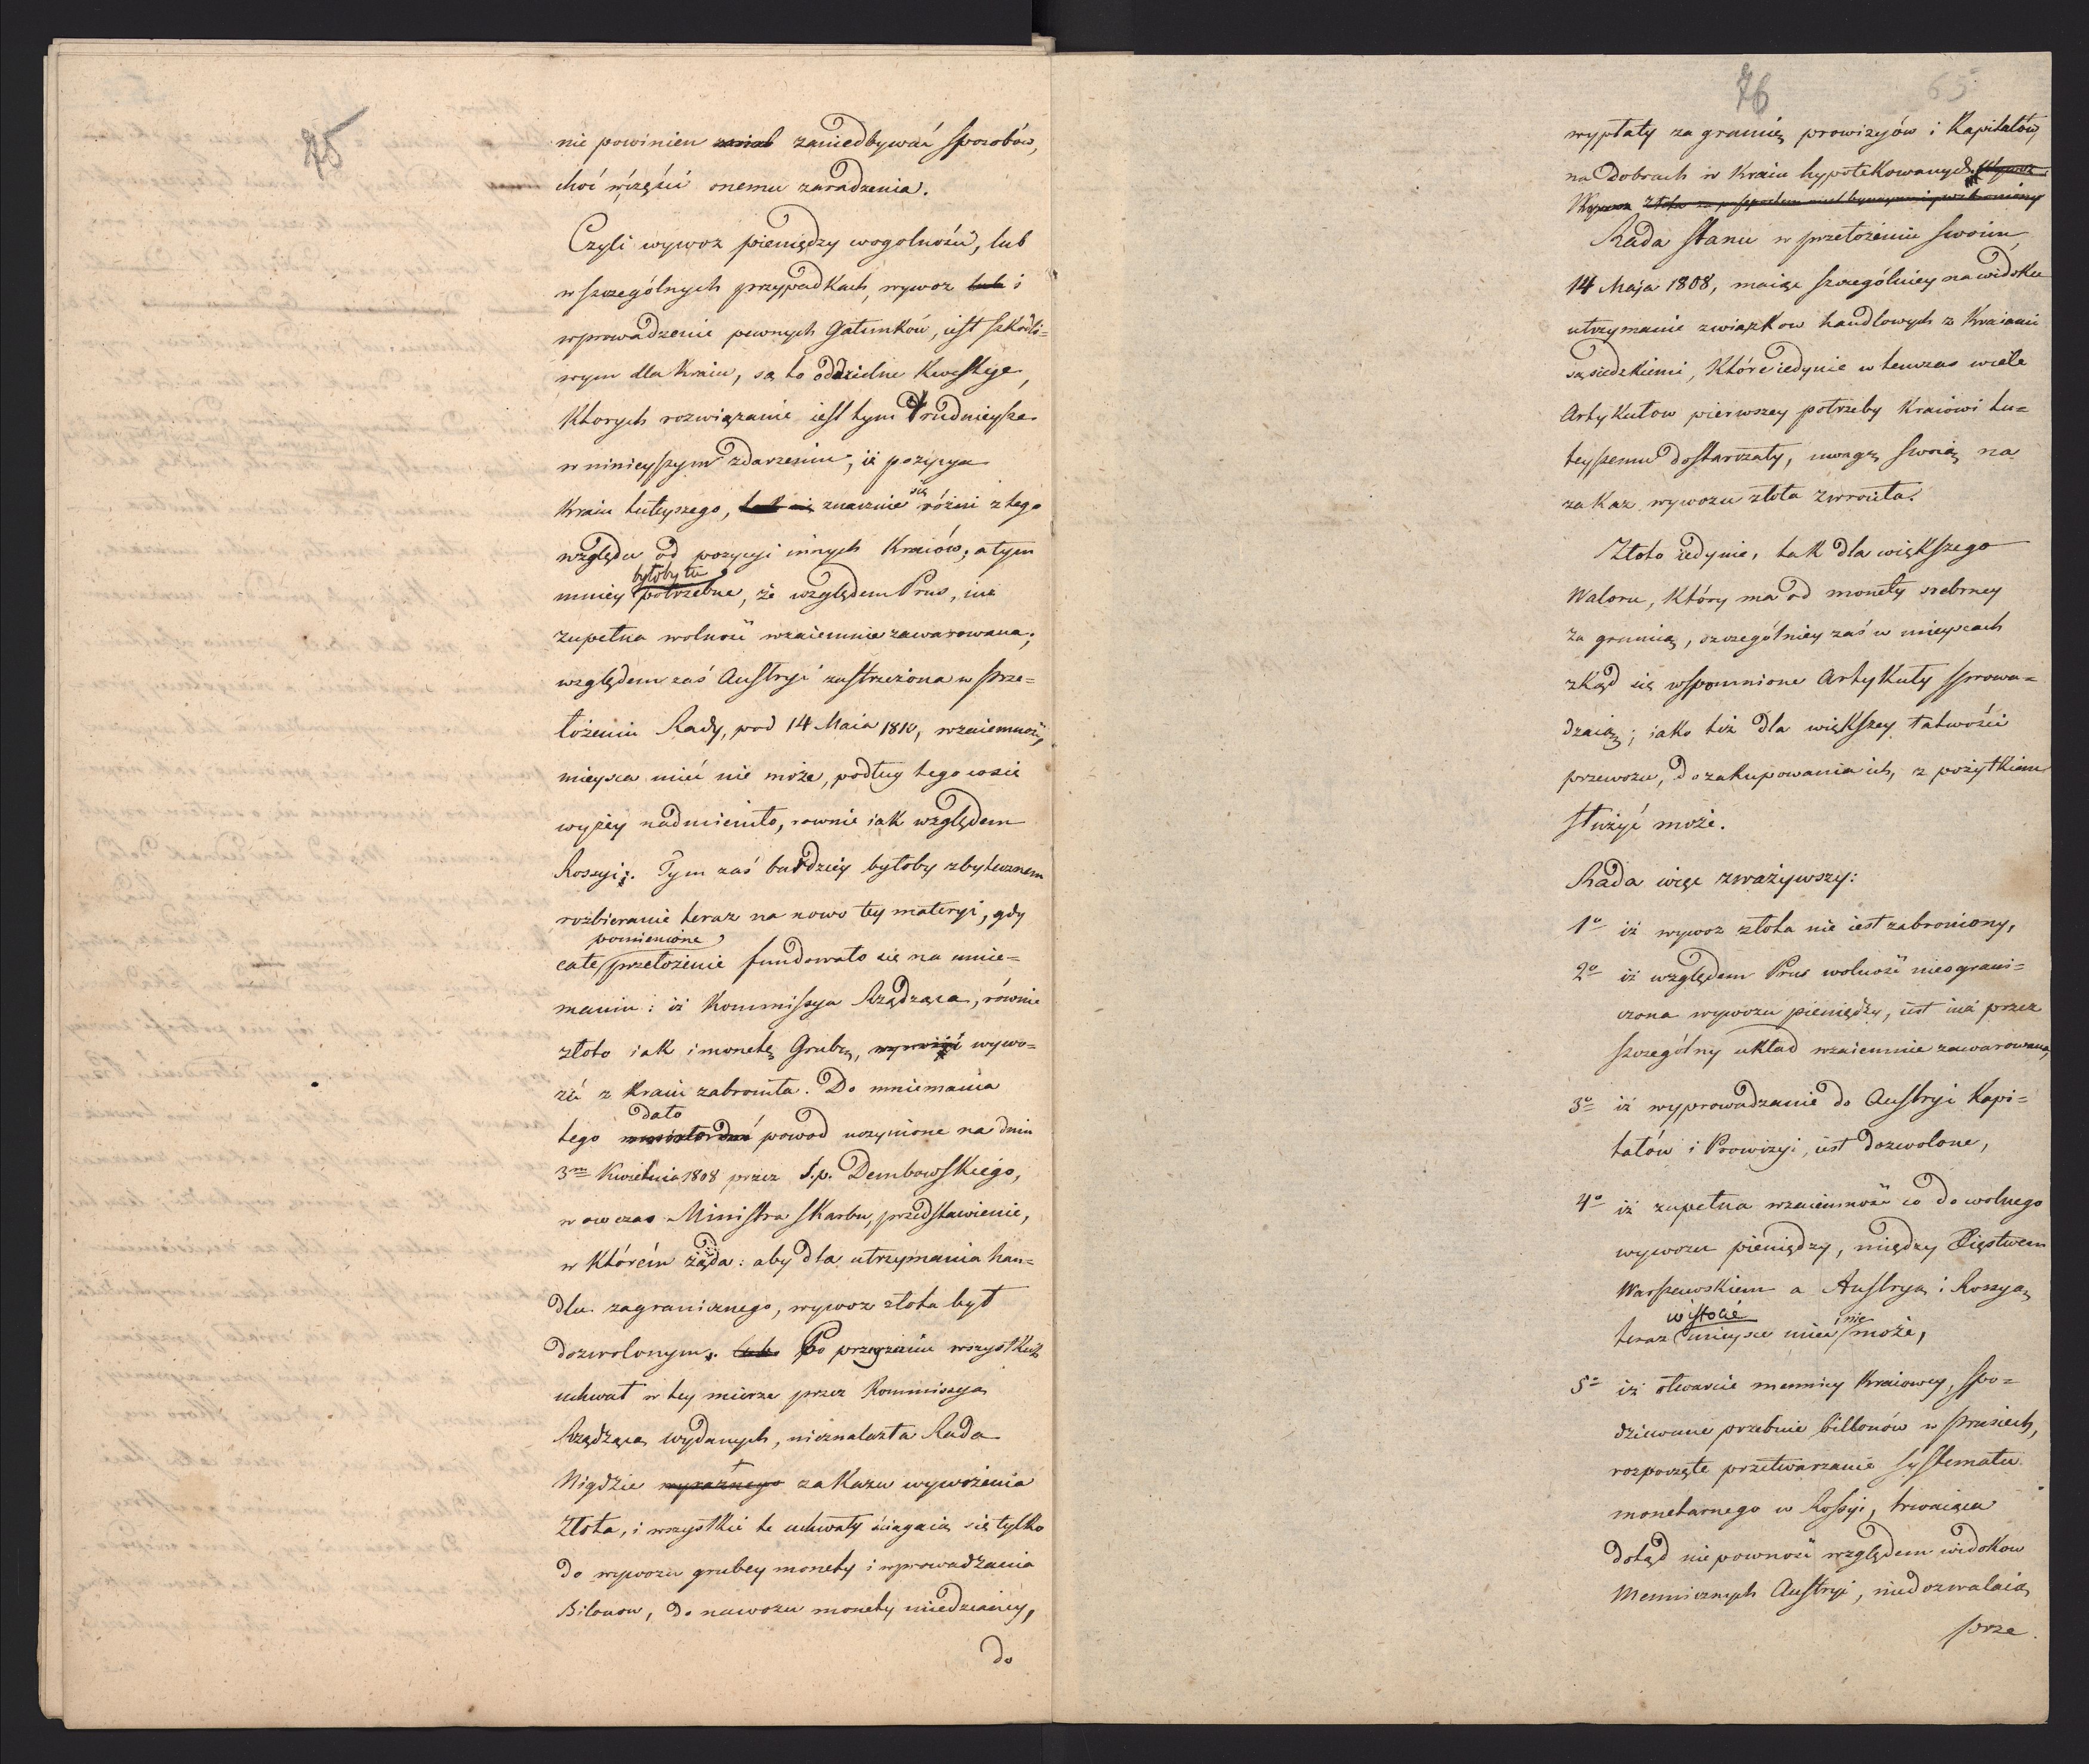 75
nie powinien zaniedbywać sposobów,
choć w części onemu zaradzenia.
Czyli wywoz pieniędzy wogolności, lub
w szczególnych przypadkach, wywoz lub i
wprowadzenie pewnych Gatunków, iest szkodli=
wym dla Kraiu, są to oddzielne Kwestye,
Ktorych rozwiązanie iest tym trudnieysze
w ninieyszym zdarzeniu, iż pozycya
Kraiu tuteyszego, tak się znacznie się różni z tego
względu od pozycyi innych Kraiów; a tym
byłoby tu
mniey potrzebne, że względem Prus, iuż
zupełna wolność wzaiemnie zawarowana;
względem zaś Austryi zastrzeżona w prze=
łożeniu Rady, pod 14 Maia 1810, wzaiemność,
mieysca mieć nie może, podług tego co się
wyżey nadmieniło, rownie iak względem
Rossyi. Tym zaś bardziey byłoby zbytecznem
rozbieranie teraz na nowo tey materyi, gdy
pomienione
całe przełożenie fundowało się na mnie=
maniu: iż Kommissya Rządząca, rownie
złoto iak i monetę Grubą, wywozić wywo=
zić z Kraiu zabroniła. Do mniemania
dało
tego powod uczynione na dniu
3m Kwietnia 1808 przez ś.p. Dembowskiego,
w ow czas Ministra Skarbu, przedstawienie,
w Którém żąda: aby dla utrzymania han=
dlu zagranicznego, wywoz złota był
dozwolonym. Po przeyrzeniu wszystkich
uchwał w tey mierze przez Kommissyą
Rządzącą wydanych, nieznalazła Rada
Nigdzie wyraźnego zakazu wywożenia
Złota, i wszystkie te uchwały ściągaią się tylko
do wywozu grubey monety i wprowadzania
Bilonow, do nawozu monety miedzianey,
do
76
65
wypłaty za granicę prowizyów i Kapitałów,
na Dobrach w Kraiu hypotekowanych.
Wywoz Złota za paszportem
Rada Stanu w przełożeniu swoim
14 Maja 1808, maiąc szczególniey na widoku
utrzymanie związkow handlowych z Kraiami
sąsiedzkiemi, Które iedynie w tenczas wiele
Artykułow pierwszey potrzeby Kraiowi tu=
teyszemu dostarczały, uwagę swoią na
zakaz wywozu złota zwrociła.
Złoto iedynie, tak dla większego
Waloru, Który ma od monety srebrney
za granicą, szczególniey zaś w mieyscach
zkąd się wspomnione Artykuły sprowa=
dzaią; iako też dla większey łatwości
przewozu, do zakupowania ich, z pożytkiem
służyć może.
Rada więc zważywszy:
1o iż wywoz złota nie iest zabroniony,
2o iż względem Prus wolność nieograni=
czona wywozu pieniędzy, iest iuż przez
szczególny układ wzaiemnie zawarowana,
3o iż wyprowadzanie do Austryi Kapi=
tałów i Prowizyi, iest dozwolone,
4o iż zupełna wzaiemność co do wolnego
wywozu pieniędzy, między Xięstwem
Warszawskiem a Austryą i Rossyą,
w istocie
teraz mieysce mieć nie może,
5o iż otwarcie mennicy Kraiowey, spo=
dziewane przebicie billonów w Prusiech,
rozpoczęte przetwarzanie systematu
monetarnego w Rossyi, trwaiąca
dotąd niepewność względem widokow
Mennicznych Austryi, niedozwalaią
prze